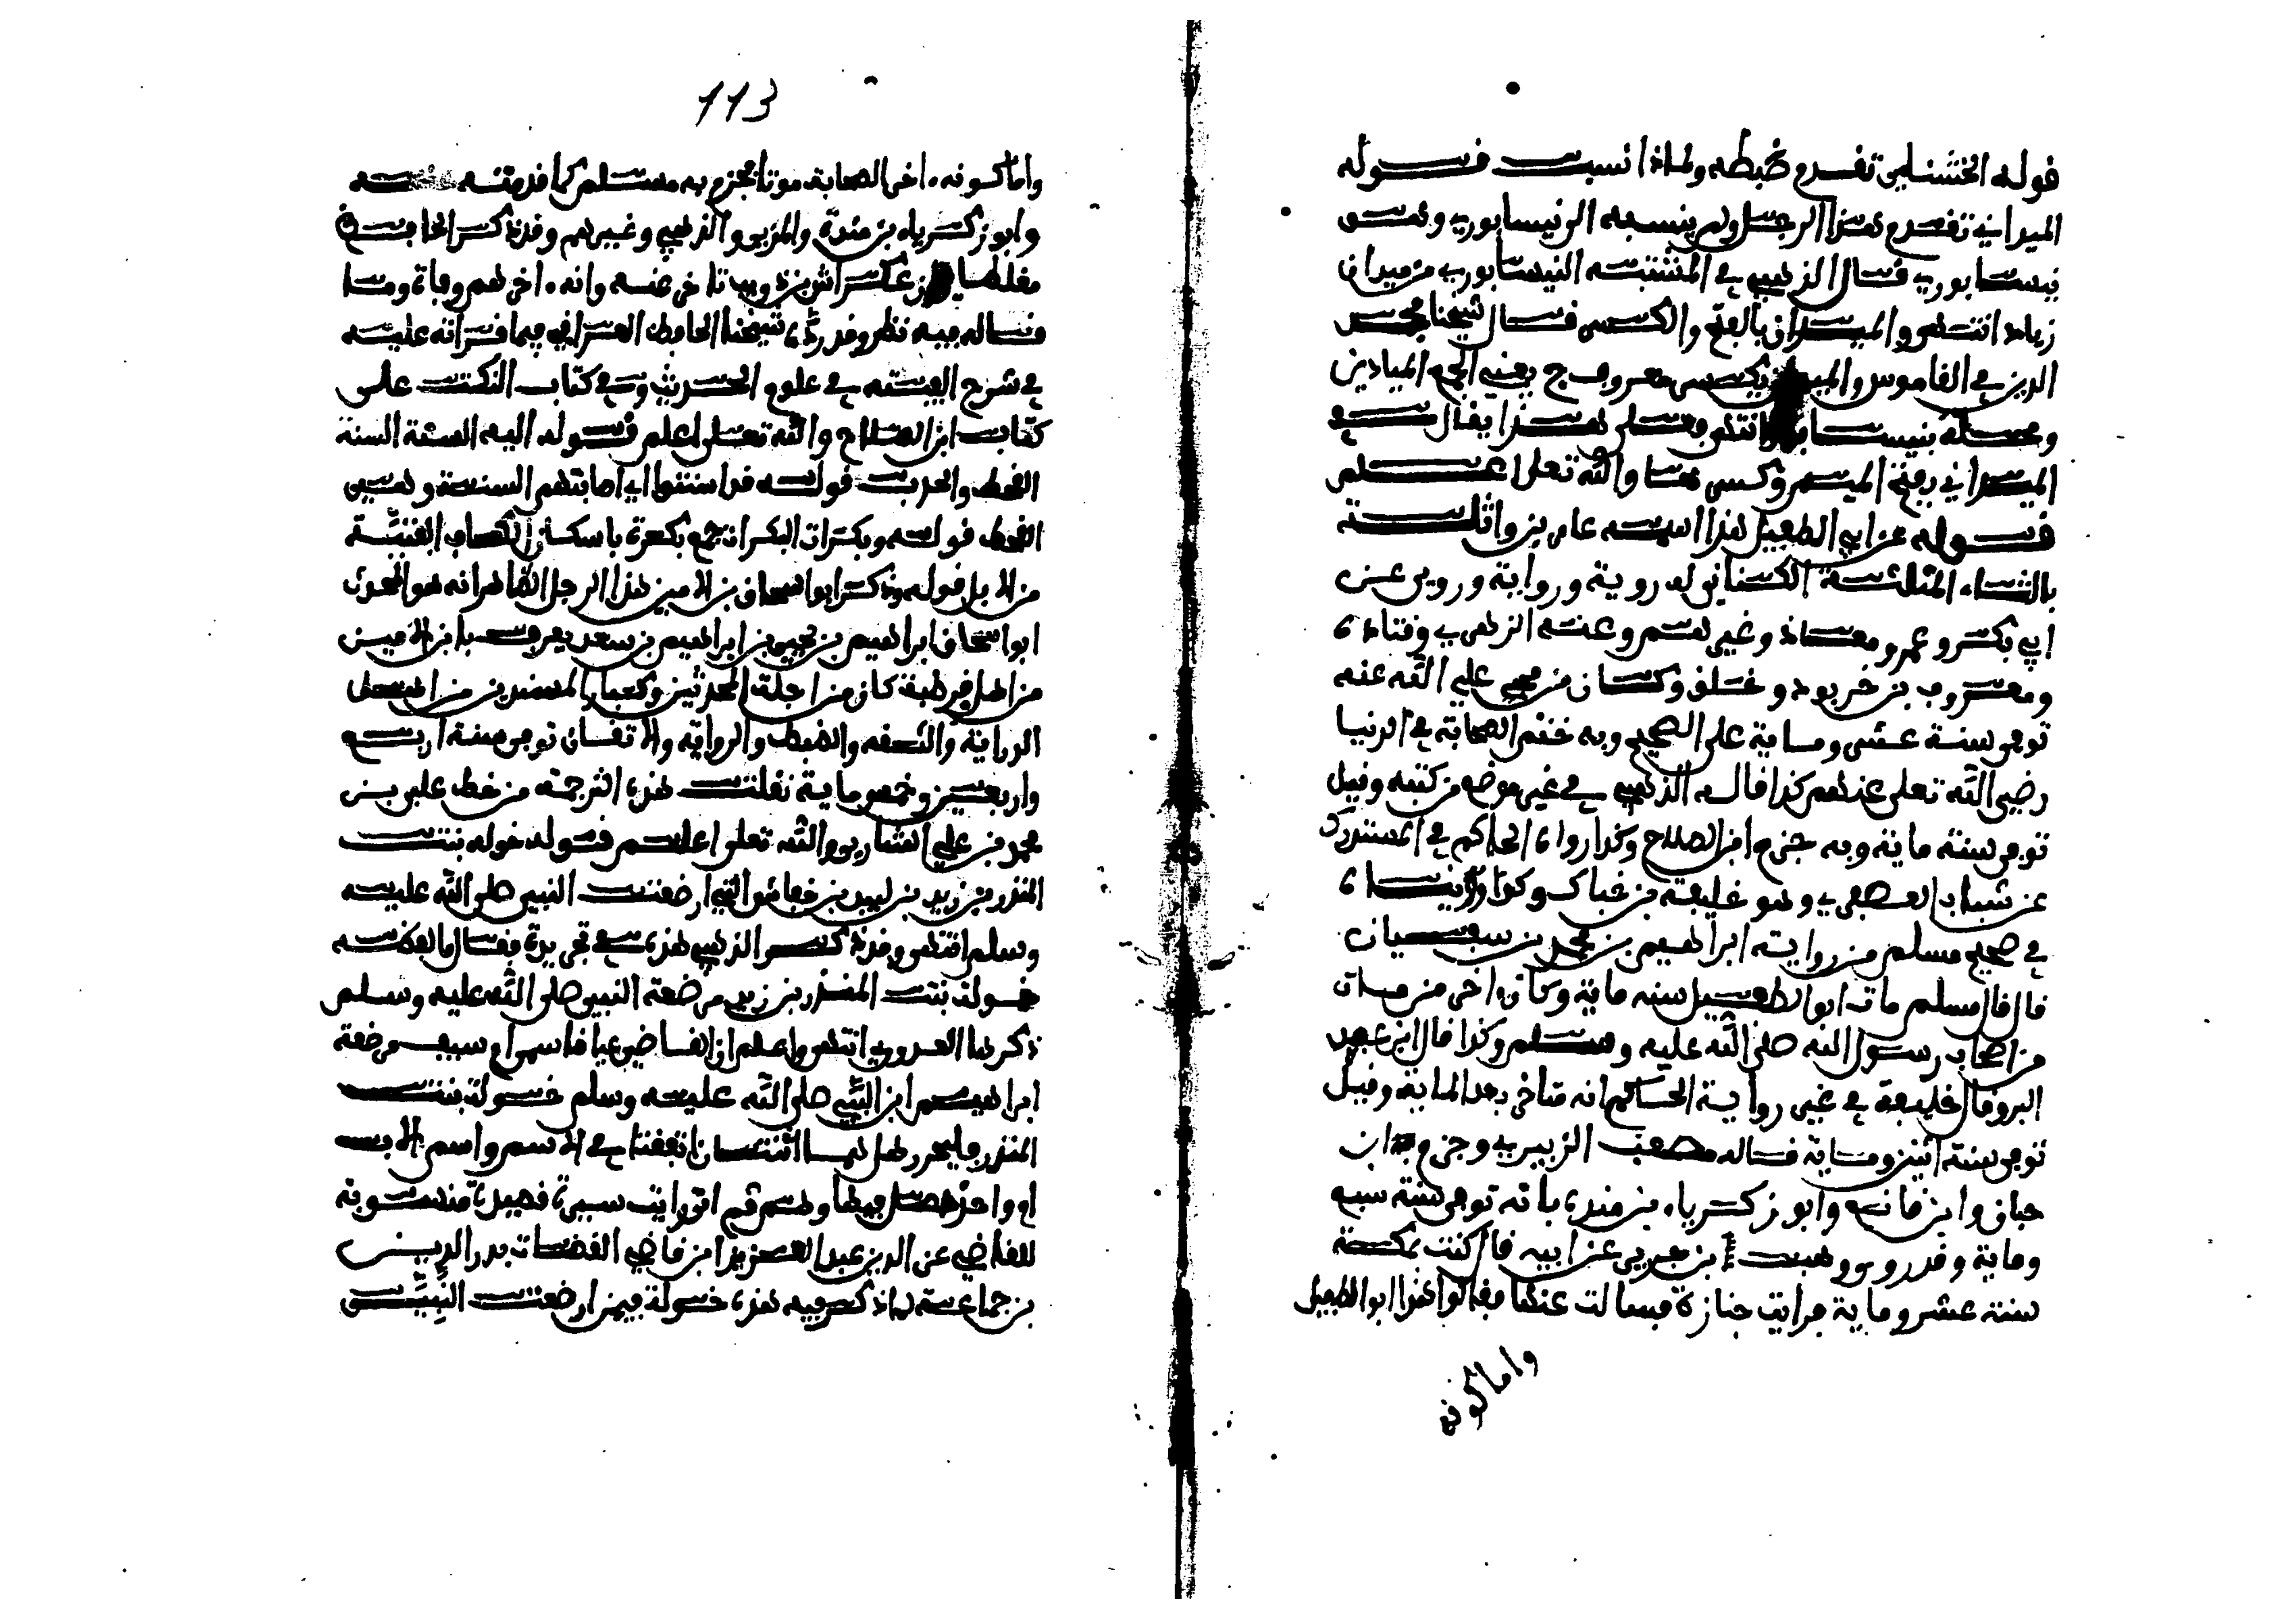 قوله الخشني تقدم ضبطه ولماذا نسبت قوله
الميداني تقدم هذا الرجل ولم ينسبه الى نيسابوري وهو
نيسابوري قال الذهبي في المشتبه النيسابوري من ميدان
زياد انتهى والميدان بالفتح والكسر قال شيخنا مجد
الدين في القاموس والميدان ويكسر معروف ج يعني الجمع الميادين
ومحلة بنيسابور انتهى فعلى هذا يقال في
الميداني بفتح الميم وكسرها والله تعالى اعلم
قوله عن ابي الطفيل هذا اسمه عامر بن واثلة
بالثاء المثلثة الكناني له رؤية ورواية وروى عن
ابي بكر وعمر ومعاذ وغيرهم وعنه الزهري وقتادة
ومعروف بن خربوذ وخلق وكان من محبي علي الله عنه
توفي سنة عشر وماية على الصحيح وبه ختم الصحابة في الدنيا
رضي الله تعلى عنهم كذا قاله الذهبي في غير موضع من كتبه وقيل
توفي سنة ماية وبه جزم ابن الصلاح وكذا رواه الحاكم في المستدرك
عن شباب العصفري وهو خليفة بن خياط وكذا
في صحيح مسلم من رواية ابراهيم بن محمد بن سفيان
قال قال مسلم مات ابو الطفيل سنة ماية وكان اخر من مات
من اصحاب رسول الله صلى الله عليه وسلم وكذا قال ابن عبد
البر وقال خليفة في غير رواية الحاكم انه تاخر بعد الماية وقيل
توفي سنة اثنين وماية قاله مصعب الزبيري وجزم ابن
حبان وابن قانع وابو زكرياء بن منده بانه توفي سنة سبع
وماية وقد روى وهب بن جرير عن ابيه قال كنت بمكة
سنة عشر وماية فرايت جنازة فسالت عنها فقالوا هذا ابو الطفيل
واما كونه
113
واما كونه اخر الصحابة موتا فجزم به مسلم كما قدمته
وابو زكرياء بن مندة والمزي والذهبي وغيرهم وقد ذكر الحافظ
مغلطاي ان عكراش بن ذويب تاخر عنه وانه اخرهم وفاة وما
قاله فيه نظر وقد رده شيخنا الحافظ العراقي فيما قراته عليه
في شرح الفيته في علوم الحديث وفي كتاب النكت على
كتاب ابن الصلاح والله تعلى اعلم قوله اليه السنة السنة
القحط والجدب قوله قد اسنتوا اي اصابتهم السنة وهي
القحط قوله وبكرات البكرات جمع بكرة باسكان الكاف الفتية
من الابل قوله وذكر ابو اسحاق بن الامين هذا الرجل الظاهر انه هو المحدث
ابو اسحاق ابراهيم بن يحيى بن ابراهيم بن سعد يعرف بابن الامين
من اهل قرطبة كان من اجلة المحدثين وكبار المسندين من اهل
الدراية والثقة والضبط والرواية والاتقان توفي سنة اربع
واربعين وخمسماية نقلت هذه الترجمة من خط علي بن
محمد بن علي والله تعلى اعلم قوله خولة بنت
المنذر بن زيد بن لبيد بن خداش التي ارضعت النبي صلى الله عليه
وسلم انتهى وقد ذكر الذهبي هذه في تجريده فقال ما لفظه
خولة بنت المنذر بن زيد مرضعة النبي صلى الله عليه وسلم
ذكرها العدوي انتهى واعلم ان القاضي عياضا سمى ام سيف مرضعة
ابراهيم ابن النبي صلى الله عليه وسلم خولة بنت
المنذر فليحرر هل هما اثنتان اتفقتا في الاسم واسم الاب
او واحدة حصل فيها وهم ثم اني رايت سيرة قصيرة منسوبة
للقاضي عز الدين عبد العزيز ابن قاضي القضاة بدر الدين
بن جماعة ذكر فيه هذه خولة فيمن ارضعت النبي